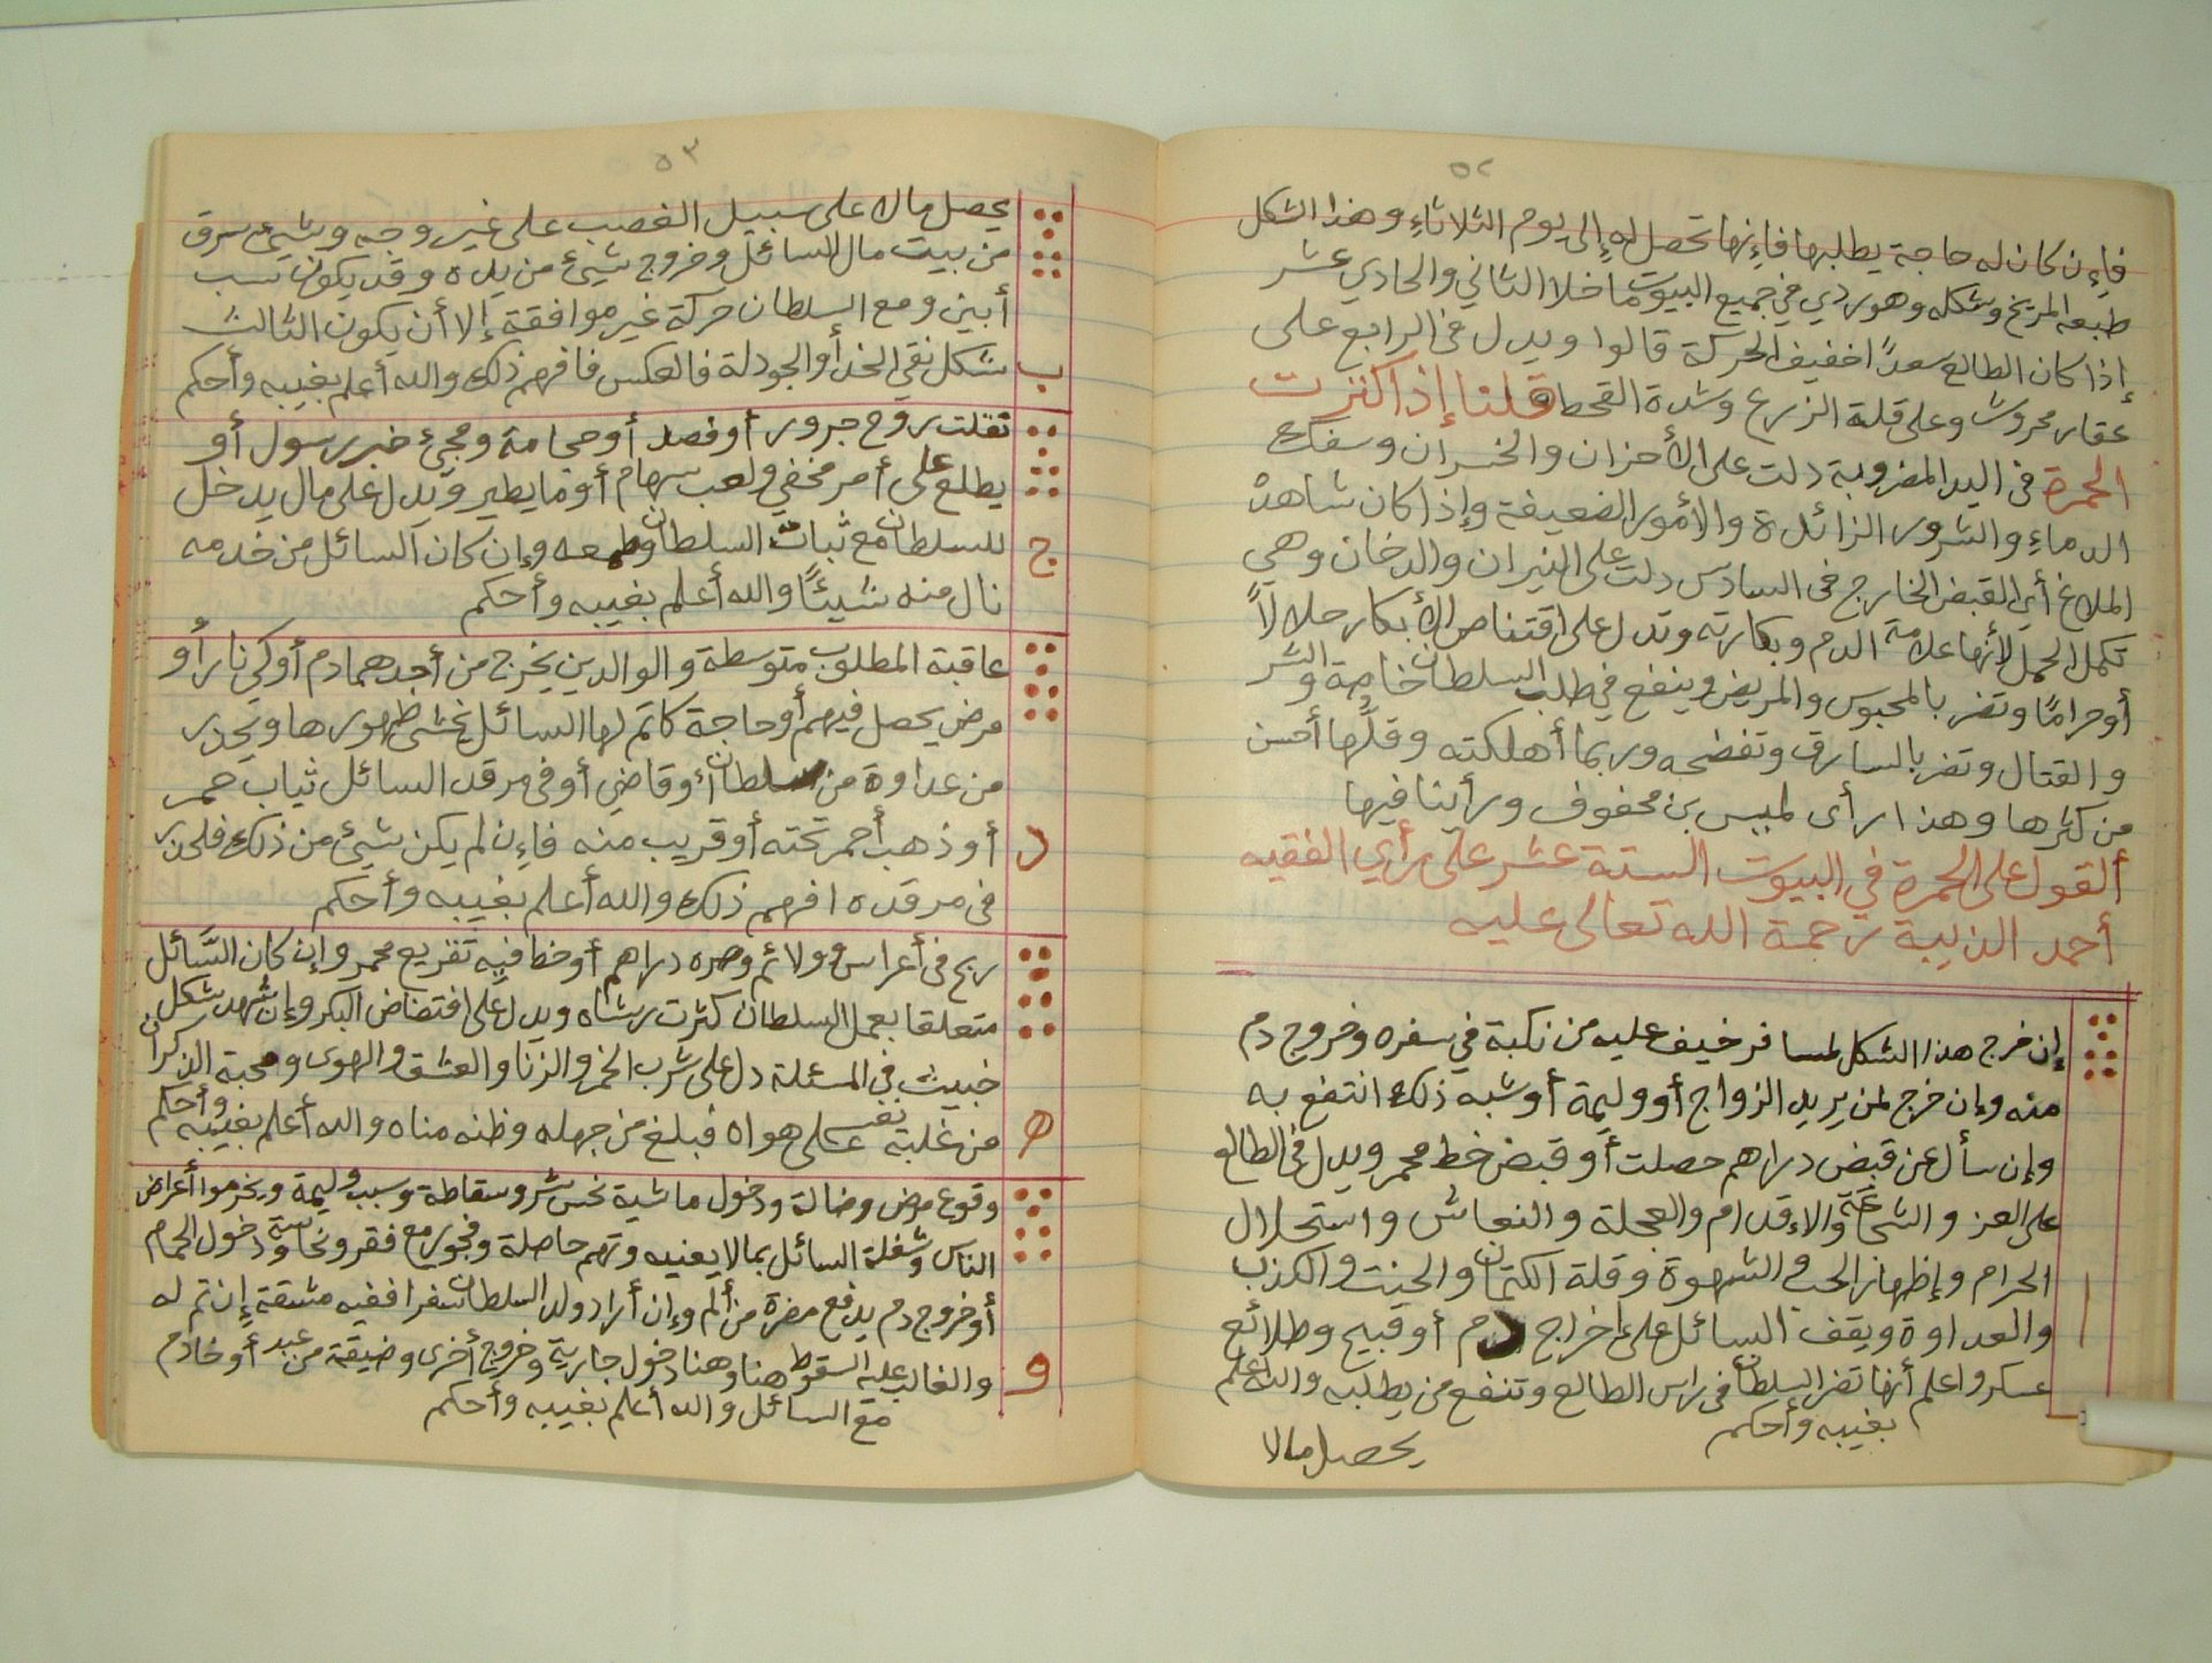 ٥٢
فإن كان له حاجة يطلبها فإنها تحصل له إلى يوم الثلاثاء وهذا الشكل
طبعه المريخ وشكله وهو ردي في جميع البيوت ما خلا الثاني والحادي عشر
إذا كان الطالع سعدًا خفيف الحركة قالوا ويدل في الرابع على
عقار محروث وعلى قلة الزرع وشدة القحط قلنا إذا كثرت
الحمرة في اليد المضروبة دلت على الأحزان والخسران وسفك
الدماء والشرور الزائدة والأمور الضعيفة وإذا كان شاهدة
الملاغ أي القبض الخارج في السادس دلت على النيران والدخان وهي
تكمل الحمل لأنها علامة الدم وبكارته وتدل على اقتناص الأبكار حلالاً
أو حرامًا وتضر بالمحبوس والمريض وينفع في طلب السلطان خاصة والشر
والقتال وتضر بالسارق وتفضحه وربما أهلكته وقلها أحسن
من كثرها وهذا رأى لمبيس بن محفوف ورأينا فيها
ألقول على الحمرة في البيوت الستة عشر على رأي الفقيه
أحمد الذيبة رحمة الله تعالى عليه
إن خرج هذا الشكل لمسافر خيف عليه من نكبة في سفره وخروج دم
منه وإن خرج لمن يريد الزواج أو وليمة أو شبه ذلك انتفع به
وإن سأل عن قبض دراهم حصلت أو قبض خط محمر ويدل في الطالع
على العز والشجاعة والإقدام والعجلة والنعاش واستحلال
الحرام وإظهار الحب والشهوة وقلة الكتمان والحنث والكذب
ا والعداوة ويقف السائل على إخراج دم أو قبيح وطلائع
عسكر واعلم أنها تضر السلطان في راس الطالع وتنفع من يطلبه والله أعلم
بغيبه وأحكم
يحصل مالا
٥٣
يحصل مالا على سبيل الغصب على غير وجه وشيئ سرق
من بيت مال السائل وخروج شيئ من يده وقد يكون نسب
أبين ومع السلطان حركة غير موافقة إلا أن يكون الثالث
ب شكل نقي الخد أو الجودلة فالعكس فافهم ذلك والله أعلم بغيبه وأحكم
تفلت روح جرور أو فصد أو حجامة ومجئ خبر رسول أو
يطلع على أمر مخفي ولعب سهام أو ما يطير ويدل على مال يدخل
ج للسلطان مع ثبات السلطان وطمعه وإن كان السائل من خدمه
نال منه شيئًا والله أعلم بغيبه وأحكم
عاقبة المطلوب متوسطة والوالدين يخرج من أجدهما دم أو كي نار أو
مرض يحصل فيهم أو حاجة كاتم لها السائل يخشى ظهورها ويحذر
من عداوة من سلطان أو قاضي أو في مرقد السائل ثياب حمر
د أو ذهب أحمر تحته أو قريب منه فإن لم يكن شيئ من ذلك فليحذر
في مرقده افهم ذلك والله أعلم بغيبه وأحكم
ربح في أعراس وولائم وصره دراهم أو خط فيه تفريع محمر وإن كان السَّائل
متعلقا بعمل السلطان كثرت رشاه ويدل على افتضاض البكر وإن شهد شكل
خبيث في المسئلة دل على شرب الخمر والزنا والعشق والهوى ومحبة الذكران
ه من غلبة نفسه على هواه فبلغ من جهله وظنه مناه والله أعلم بغيبه وأحكم
وقوع مرض وضالة ودخول ماشية نحس شر وسقاطة وسبب وليمة ويخرموا أعراض
الناس وشغلة السائل بما لا يعنيه وتهم حاصلة وفجور مع فقر ونحاسة ودخول الحمام
أو خروج دم يدفع مضرة من ألم وإن أراد ولد السلطان سفرا ففيه مشقة إن تم له
و والغالب عليه السقوط هنا وهنا دخول جارية وخروج أخرى وضيقة من عبد أو خادم
مع السائل والله أعلم بغيبه وأحكم